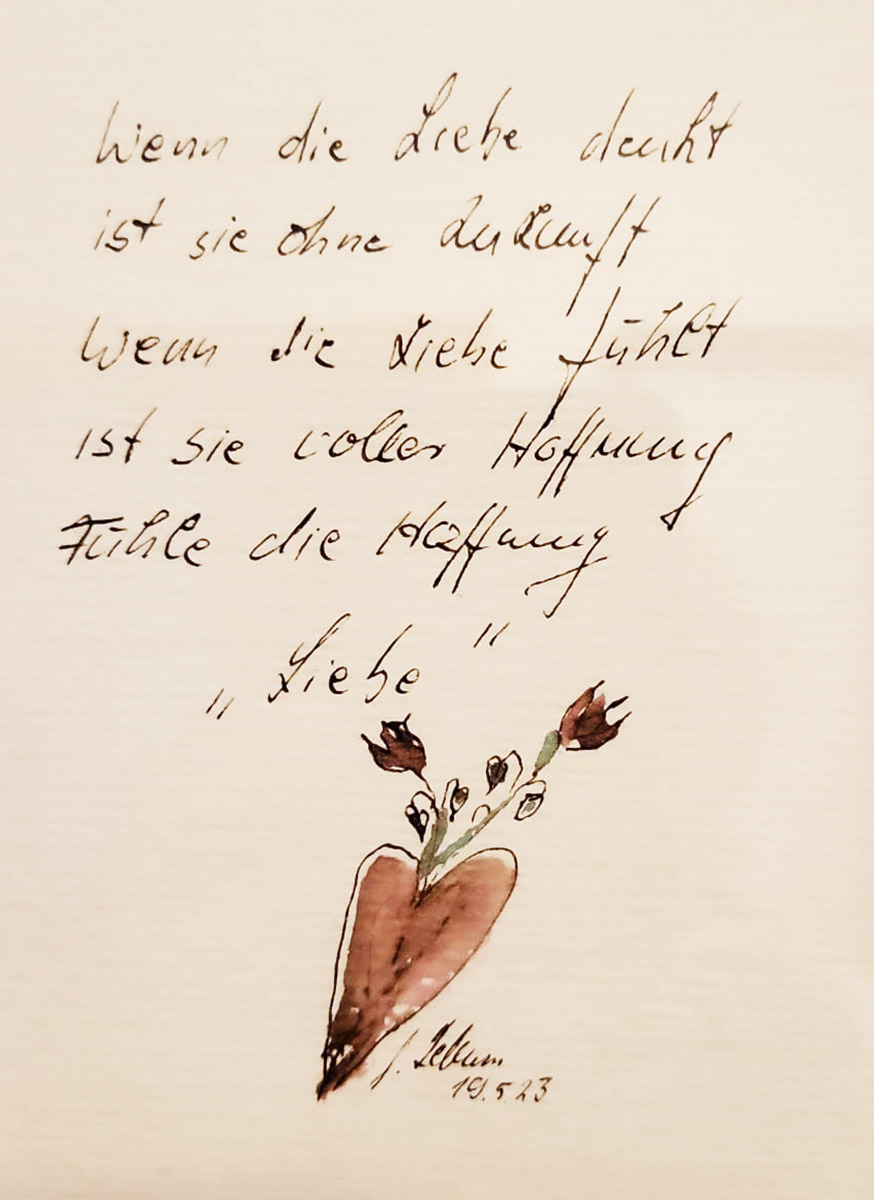 Wenn die Liebe denkt
ist sie ohne Zukunft
Wenn die Liebe fühlt
ist sie voller Hoffnung
Fühle die Hoffnung
„Liebe"
19.5.23